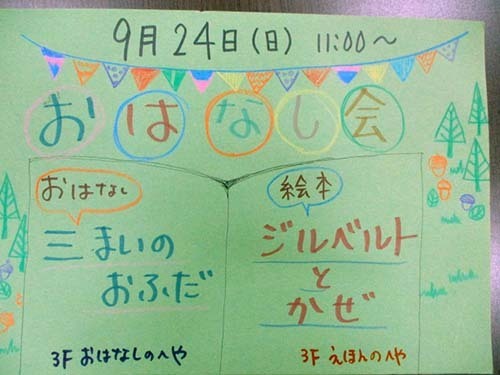 9月24日(日) 11:00～
おはなし会
おはなし
三まいの
おふだ
3F おはなしのへや
絵本
ジルベルト
と
かぜ
3F えほんのへや